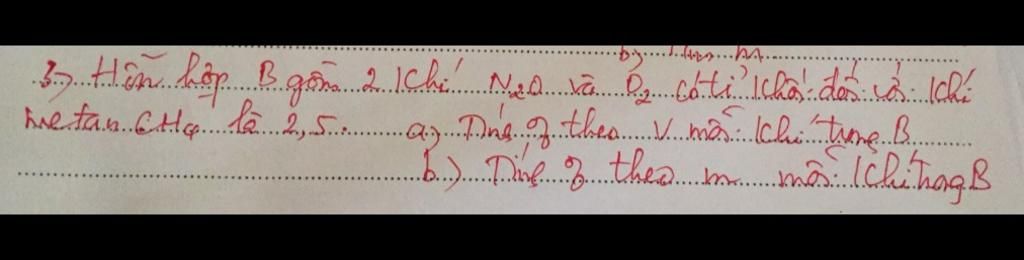 b) Tính m
3) Hỗn hợp B gồm 2 khí N2O và O2 có tỉ khối đối với khí
metan CH4 là 2,5. a) Tính % theo V mỗi khí trong B
b) Tính % theo m mỗi khí trong B